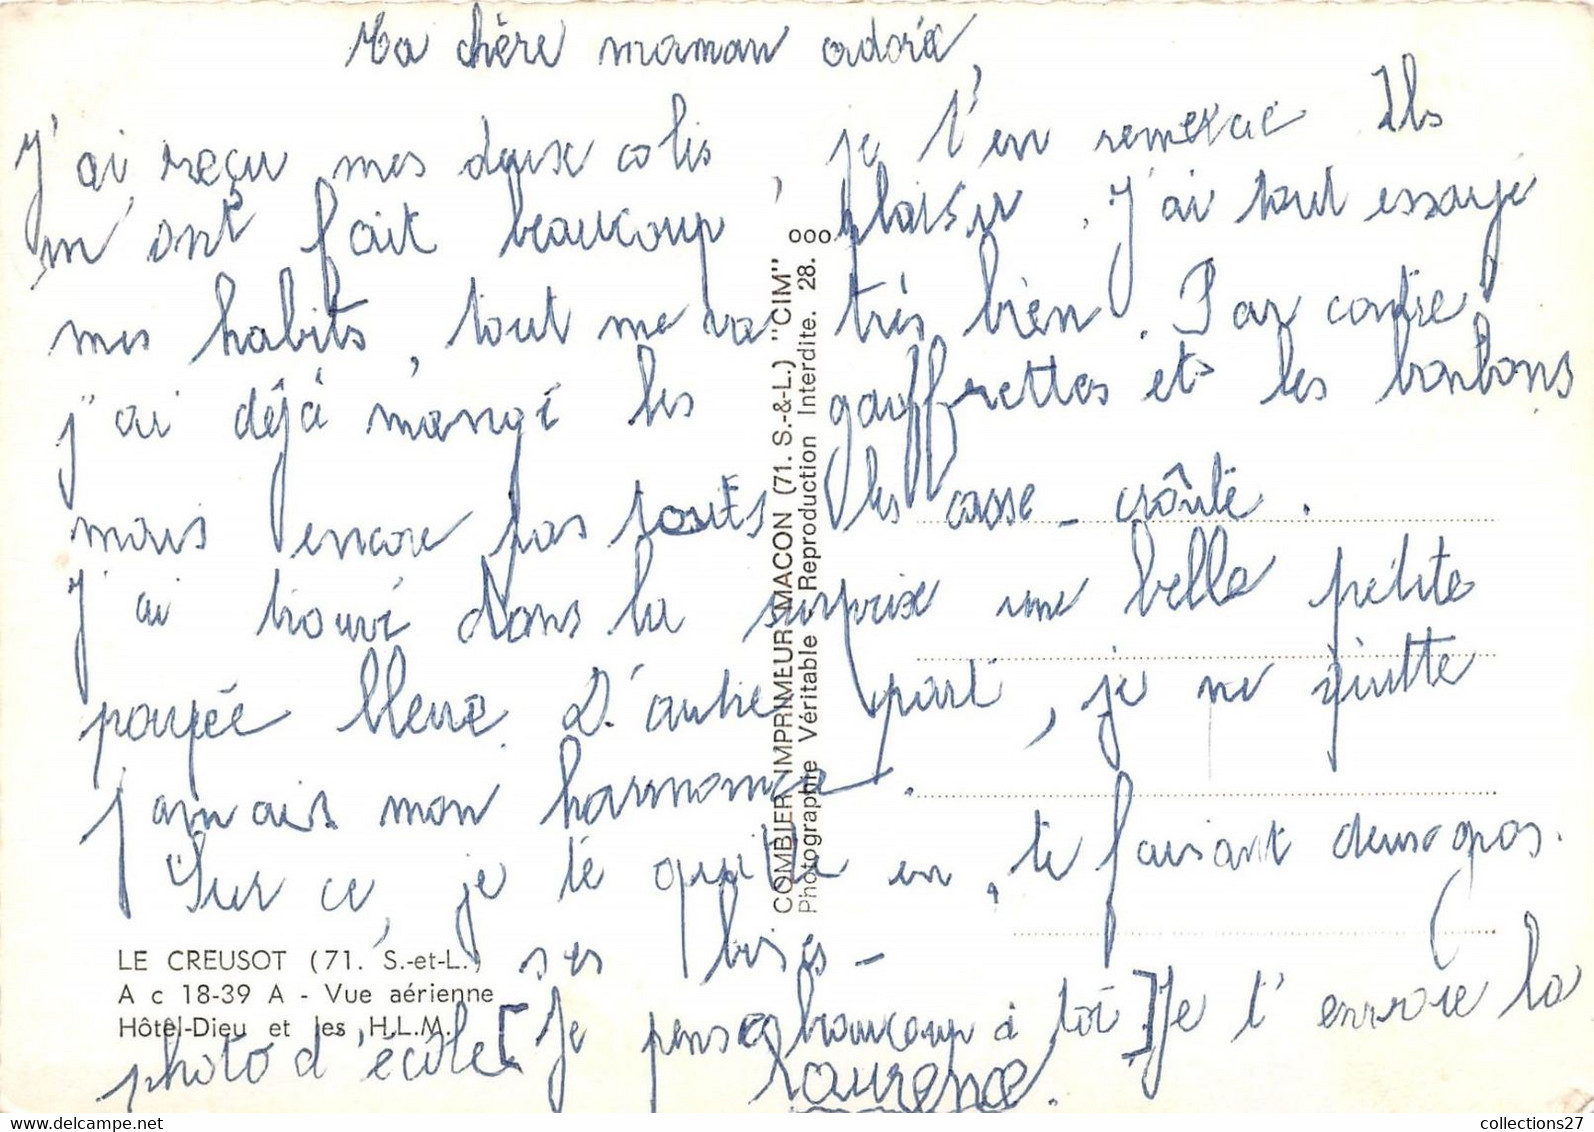 Ma chère maman adorée,
J'ai reçu mes deux colis, je t'en remercie Ils
m'ont fait beaucoup plaisir. J'ai tout essayé
mes habits, tout me va très bien. Par contre
j'ai déjà mangé les gauffrettes et les bonbons
mais encore pas touts les casse-croûte.
J'ai trouvé dans la surprise une belle petite
poupée bleue. D'autre part, je ne quitte
jamais mon harmonica.
Sur ce, je te quitte en te faisant deux gros.
ses bises -
[Je pense beaucoup à toi] Je t'envoie la
photo d'école
Laurence.
LE CREUSOT (71. S.-et-L.)
A c 18-39 A - Vue aérienne
Hôtel-Dieu et les H.L.M.
COMBIER IMPRIMEUR MACON (71. S.-&-L.) "CIM"
Photographie Véritable. Reproduction Interdite. 28. ooo
collections27